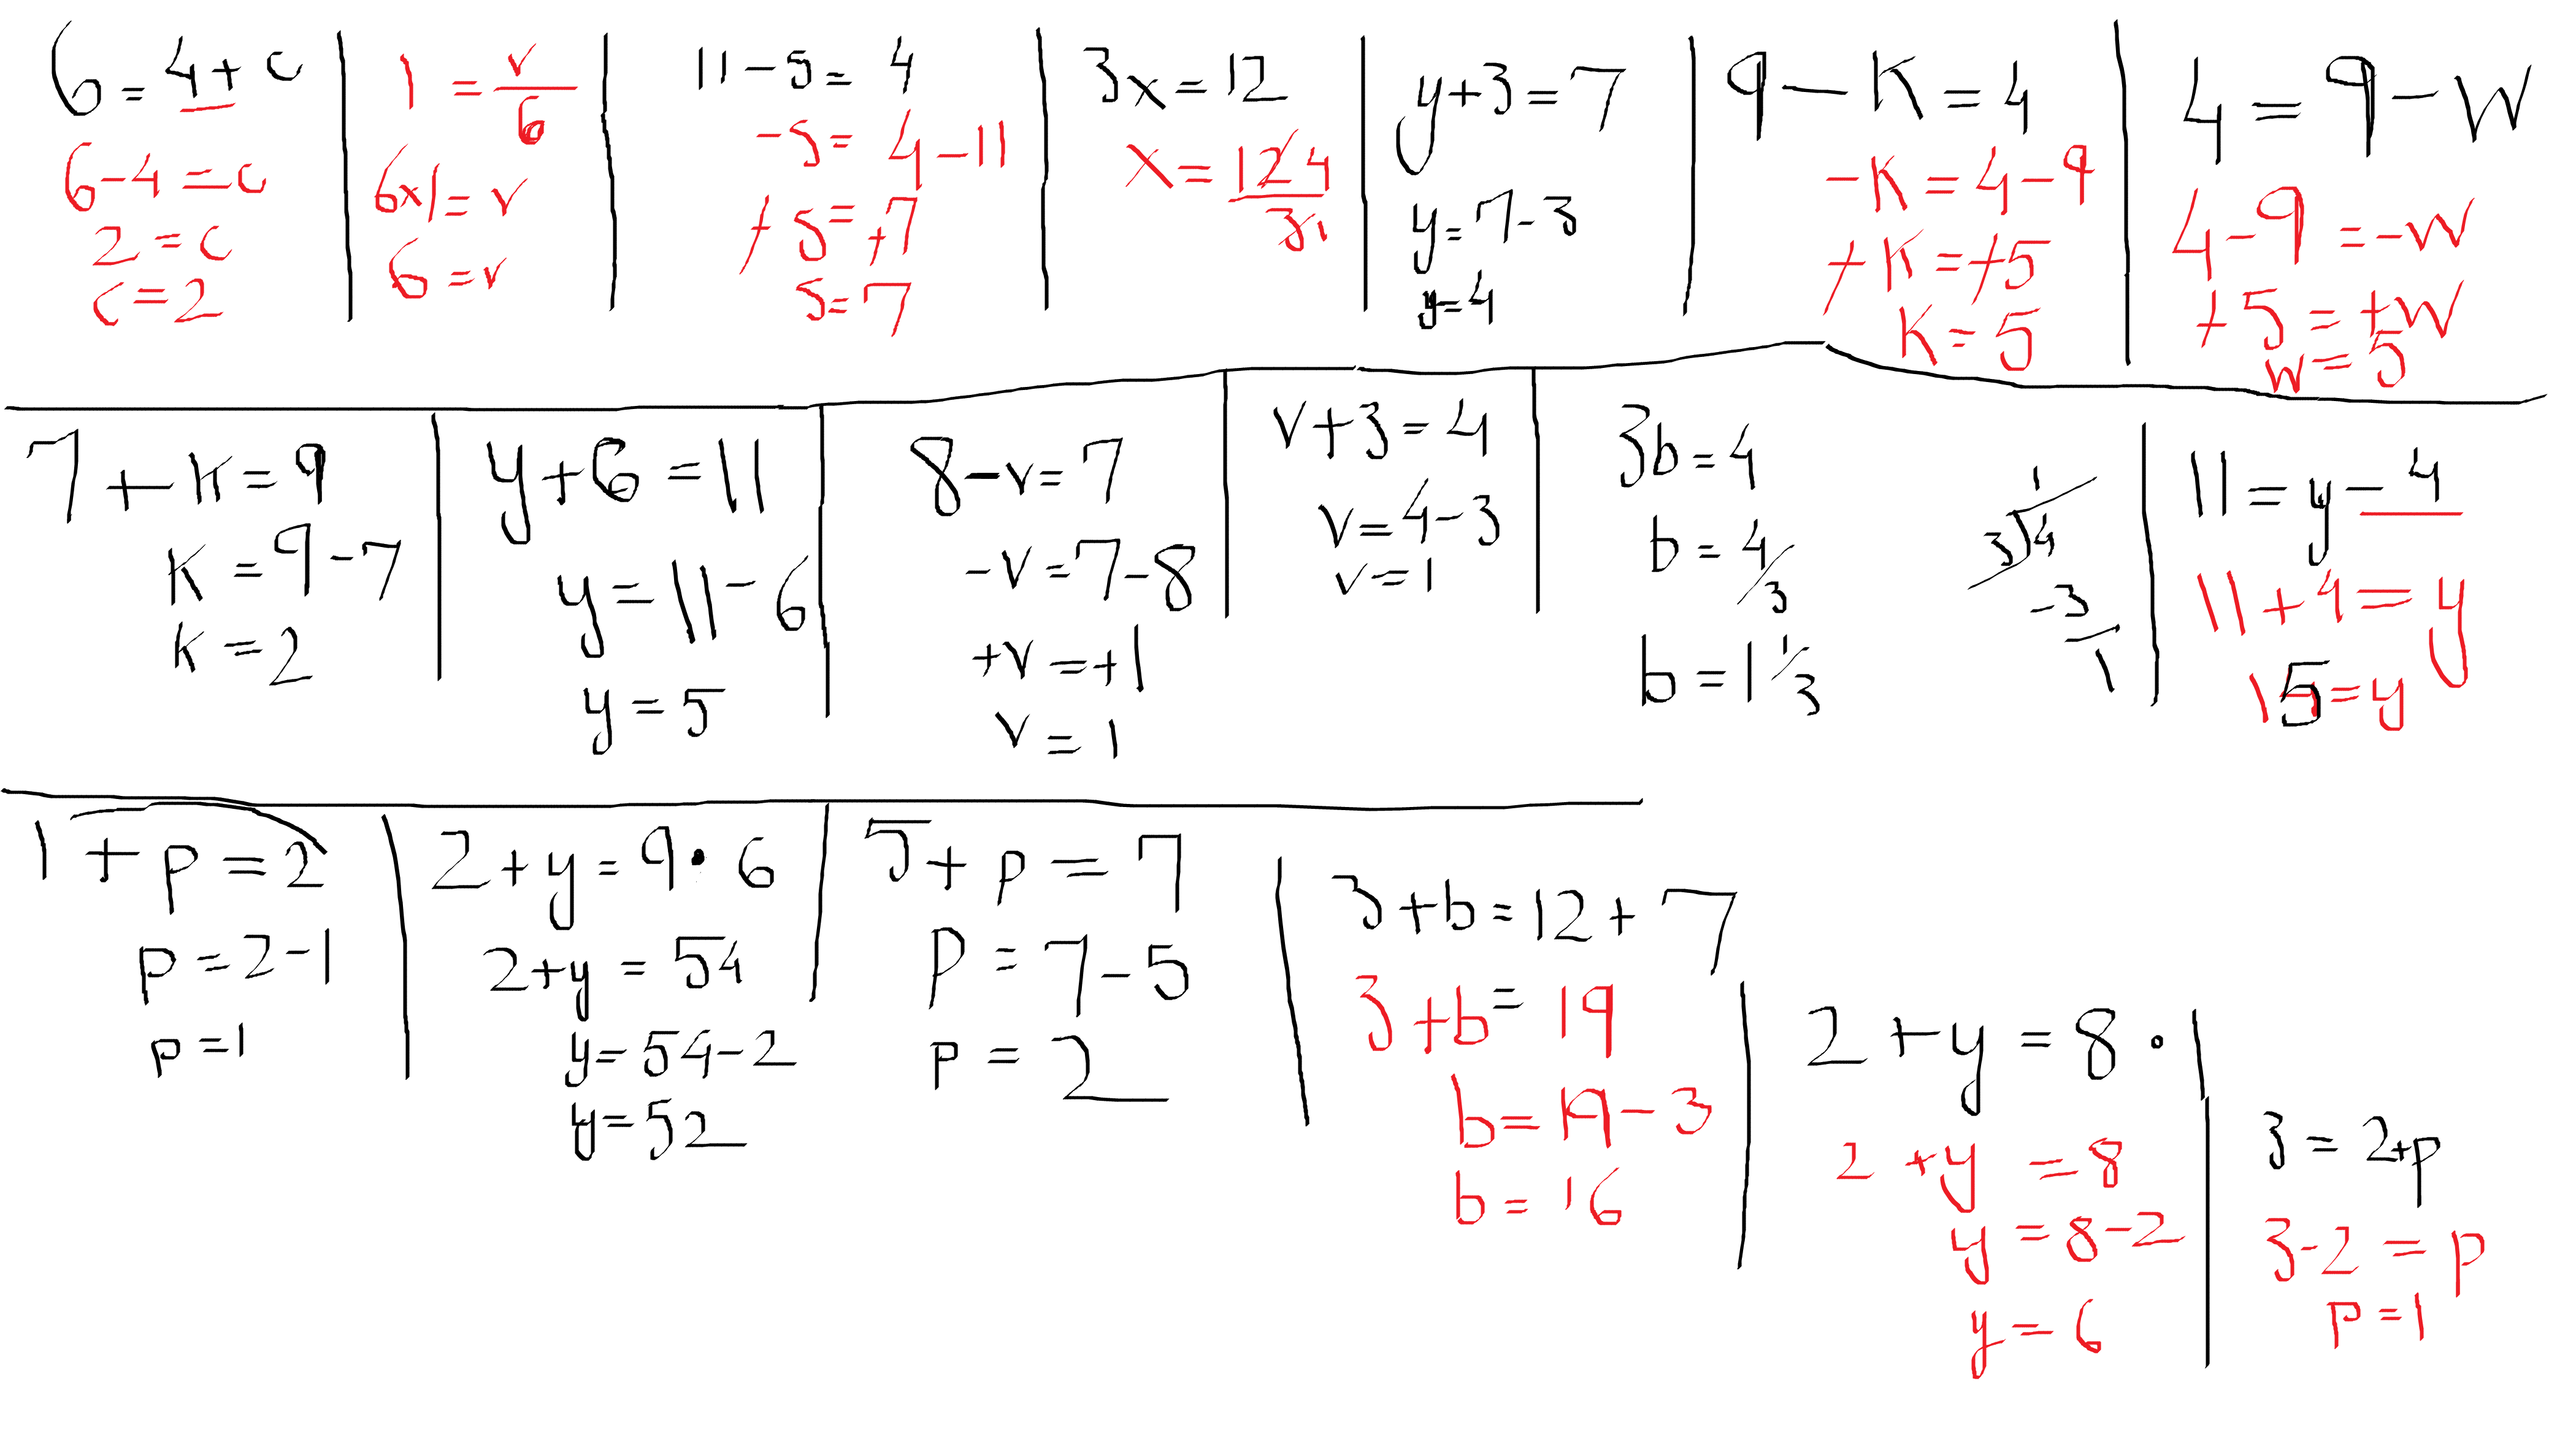 6 = 4 + c
6 - 4 = c
2 = c
c = 2
1 = v/6
6x1 = v
6 = v
11 - s = 4
-s = 4 - 11
+ s = +7
s = 7
3x = 12
x = 12 4
3 1
y + 3 = 7
y = 7 - 3
y = 4
9 - K = 4
-K = 4 - 9
+K = +5
K = 5
4 = 9 - W
4 - 9 = -W
+5 = +W
W = 5
7 + K = 9
K = 9 - 7
K = 2
y + 6 = 11
y = 11 - 6
y = 5
8 - v = 7
-v = 7 - 8
+v = +1
v = 1
v + 3 = 4
v = 4 - 3
v = 1
3b = 4
b = 4/3
b = 1 1/3
1
3√4
-3
1
11 = y - 4
11 + 4 = y
15 = y
1 + p = 2
p = 2 - 1
p = 1
2 + y = 9 · 6
2 + y = 54
y = 54 - 2
y = 52
5 + p = 7
p = 7 - 5
p = 2
3 + b = 12 + 7
3 + b = 19
b = 19 - 3
b = 16
2 + y = 8 · 1
2 + y = 8
y = 8 - 2
y = 6
3 = 2 + p
3 - 2 = p
p = 1